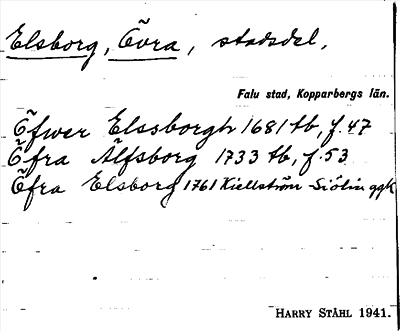 Elsborg, Övra, stadsdel.
Falu stad, Kopparbergs län.
Öfwer Elssborgh 1681 tb, f. 47
Öfra Älfsborg 1733 tb, f. 53
Öfra Elsborg 1761 Kiellström-Siölin ggk
HARRY STÅHL 1941.